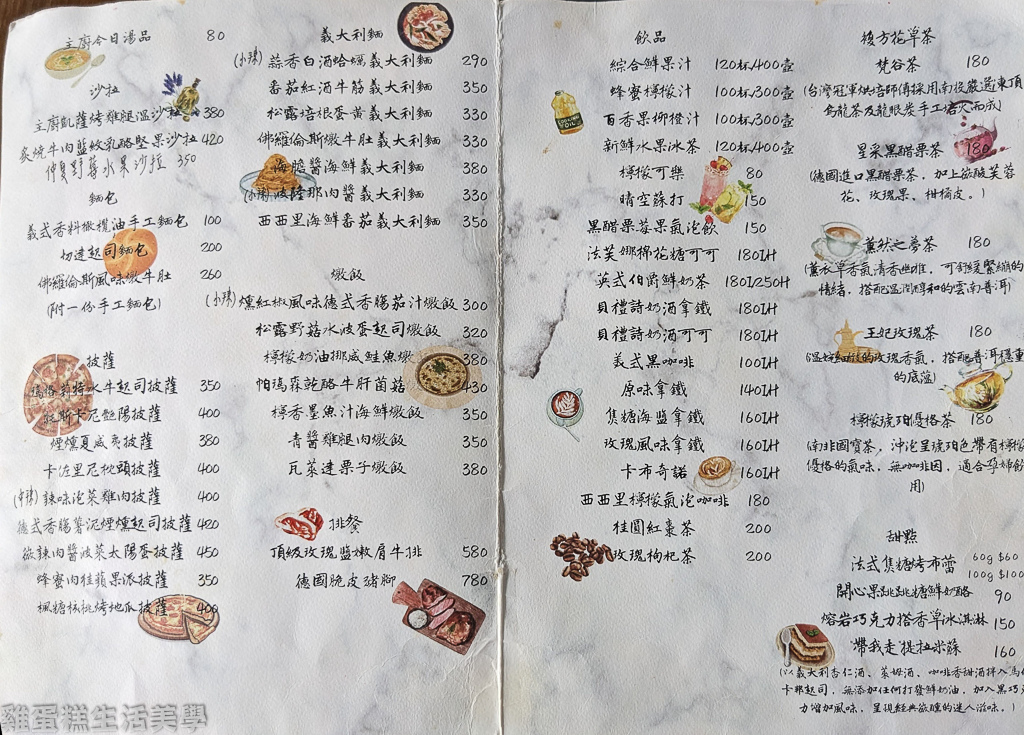 主廚今日湯品 80
沙拉
主廚凱薩烤雞腿溫沙拉 380
炙燒牛肉藍紋乳酪堅果沙拉 420
仲夏野莓水果沙拉 350
麵包
義式香料橄欖油手工麵包 100
切達起司麵包 200
佛羅倫斯風味燉牛肚 260
(附一份手工麵包)
披薩
瑪格莉特水牛起司披薩 350
托斯卡尼艷陽披薩 400
煙燻夏威夷披薩 380
卡佐里尼枕頭披薩 400
(中辣)辣味泡菜雞肉披薩 400
德式香腸薯泥煙燻起司披薩 420
微辣肉醬波菜太陽蛋披薩 450
蜂蜜肉桂蘋果派披薩 350
楓糖核桃烤地瓜披薩 400
義大利麵
(小辣)蒜香白酒蛤蠣義大利麵 290
番茄紅酒牛筋義大利麵 350
松露培根蛋黃義大利麵 330
佛羅倫斯燉牛肚義大利麵 330
海膽醬海鮮義大利麵 380
(小辣)波隆那肉醬義大利麵 330
西西里海鮮番茄義大利麵 350
燉飯
(小辣)燻紅椒風味德式香腸茄汁燉飯 300
松露野菇水波蛋起司燉飯 320
檸檬奶油挪威鮭魚燉 380
帕瑪森乾酪牛肝菌菇 430
檸香墨魚汁海鮮燉飯 350
青醬雞腿肉燉飯 350
瓦萊達栗子燉飯 380
排餐
頂級玫瑰鹽嫩肩牛排 580
德國脆皮豬腳 780
飲品
綜合鮮果汁 120杯/400壺
蜂蜜檸檬汁 100杯/300壺
百香果柳橙汁 100杯/300壺
新鮮水果冰茶 120杯/400壺
檸檬可樂 80
晴空蘇打 150
黑醋栗莓果氣泡飲 150
法芙娜棉花糖可可 180I/H
英式伯爵鮮奶茶 180I/250H
貝禮詩奶酒拿鐵 180I/H
貝禮詩奶酒可可 180I/H
義式黑咖啡 100I/H
原味拿鐵 140I/H
焦糖海鹽拿鐵 160I/H
玫瑰風味拿鐵 160I/H
卡布奇諾 160I/H
西西里檸檬氣泡咖啡 180
桂圓紅棗茶 200
玫瑰枸杞茶 200
複方花草茶
梵谷茶 180
(台灣冠軍烘培師傅採用南投嚴選凍頂
烏龍茶及龍眼炭手工焙火而成)
星采黑醋栗茶 180
(德國進口黑醋栗茶,加上微酸芙蓉
花、玫瑰果、柑橘皮。)
薰然之夢茶 180
(薰衣草香氣清香幽雅,可舒緩緊繃的
情緒,搭配溫潤醇和的雲南普洱)
王妃玫瑰茶 180
的玫瑰香氣,搭配普洱穩重
的底蘊)
檸檬琥珀優格茶 180
(南非國寶茶,沖泡呈琥珀色帶有檸檬
優格的氣味,無咖啡因,適合孕婦飲
用)
甜點
法式焦糖烤布蕾 60g $60
100g $100
開心果跳跳糖鮮奶酪 90
熔岩巧克力搭香草冰淇淋 150
"帶我走"提拉米蘇 160
(以義大利杏仁酒、萊姆酒、咖啡香甜酒拌入馬
卡邦起司,無添加任何打發鮮奶油,加入黑巧
力增加風味,呈現經典微醺的迷人滋味。)
雞蛋糕生活美學